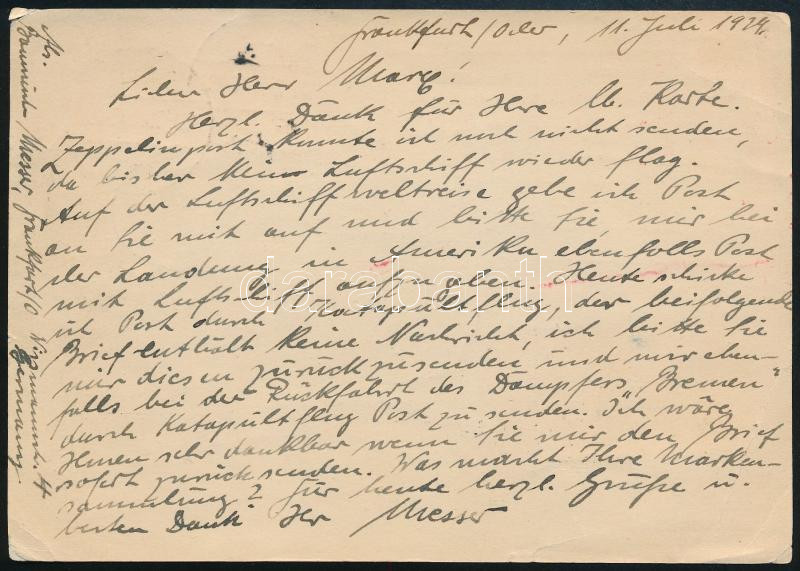 Frankfurt/Oder, 11. Juli 1929.
Lieber Herr Marx!
Herzl. Dank für Ihre lb. Karte.
Zeppelinpost konnte ich noch nicht senden,
da bisher kein Luftschiff wieder flog.
Auf der Luftschiffweltreise gebe ich Post
an Sie mit auf und bitte Sie, mir bei
der Landung in Amerika ebenfalls Post
mit Luftschiff aufzugeben. Heute schicke
ich Post durch Katapultflug, der beifolgende
Brief enthält keine Nachricht, ich bitte Sie
mir diesen zurückzusenden und mir eben-
falls bei der Rückfahrt des Dampfers „Bremen"
durch Katapultflug Post zu senden. Ich wäre
Ihnen sehr dankbar wenn Sie mir den Brief
sofort zurücksenden. Was macht Ihre Marken-
sammlung? Für heute herzl. Grüße u.
besten Dank Ihr Messer
Abs.
Messer, Frankfurt/O
Germany
darabanth